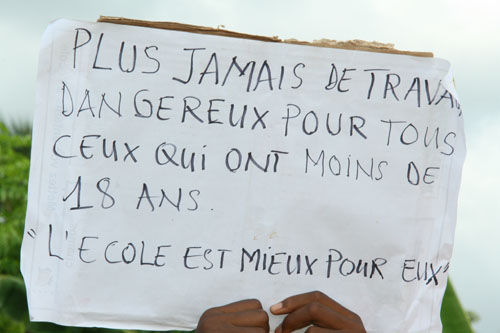 PLUS JAMAIS DE TRAVA
DANGEREUX POUR TOUS
CEUX QUI ONT MOINS DE
18 ANS.
"L'ECOLE EST MIEUX POUR EUX"